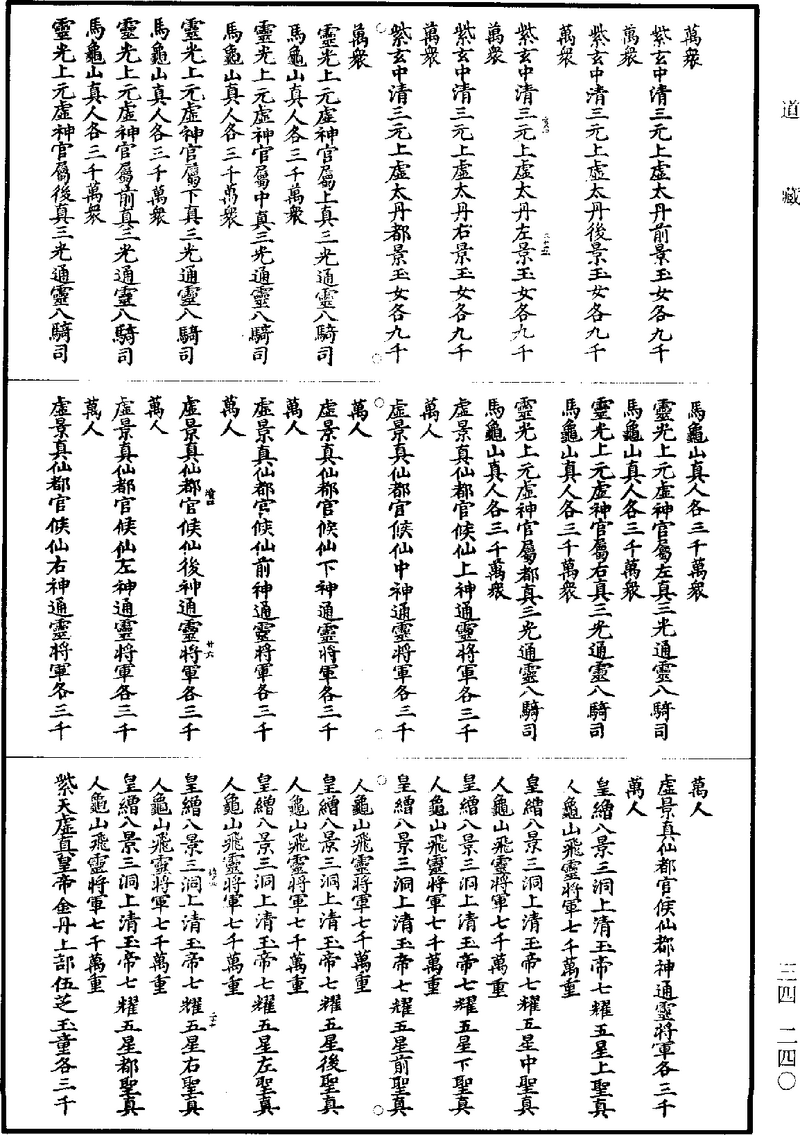 道藏
萬衆
紫玄中清三元上虛太丹前景玉女各九千
萬衆
紫玄中清三元上虛太丹後景玉女各九千
萬衆
紫玄中清三元上虛太丹左景玉女各九千
萬衆
紫玄中清三元上虛太丹右景玉女各九千
萬衆
紫玄中清三元上虛太丹都景玉女各九千
萬衆
靈光上元虛神官屬上真三光通靈八騎司
馬龜山真人各三千萬衆
靈光上元虛神官屬中真三光通靈八騎司
馬龜山真人各三千萬衆
靈光上元虛神官屬下真三光通靈八騎司
馬龜山真人各三千萬衆
靈光上元虛神官屬前真三光通靈八騎司
馬龜山真人各三千萬衆
靈光上元虛神官屬後真三光通靈八騎司
馬龜山真人各三千萬衆
靈光上元虛神官屬左真三光通靈八騎司
馬龜山真人各三千萬衆
靈光上元虛神官屬右真三光通靈八騎司
馬龜山真人各三千萬衆
靈光上元虛神官屬都真三光通靈八騎司
馬龜山真人各三千萬衆
虛景真仙都官候仙上神通靈將軍各三千
萬人
虛景真仙都官候仙中神通靈將軍各三千
萬人
虛景真仙都官候仙下神通靈將軍各三千
萬人
虛景真仙都官候仙前神通靈將軍各三千
萬人
虛景真仙都官候仙後神通靈將軍各三千
廿六
萬人
虛景真仙都官候仙左神通靈將軍各三千
萬人
虛景真仙都官候仙右神通靈將軍各三千
萬人
虛景真仙都官候仙都神通靈將軍各三千
萬人
皇繒八景三洞上清玉帝七耀五星上聖真
人龜山飛靈將軍七千萬重
皇繒八景三洞上清玉帝七耀五星中聖真
人龜山飛靈將軍七千萬重
皇繒八景三洞上清玉帝七耀五星下聖真
人龜山飛靈將軍七千萬重
皇繒八景三洞上清玉帝七耀五星前聖真
人龜山飛靈將軍七千萬重
皇繒八景三洞上清玉帝七耀五星後聖真
人龜山飛靈將軍七千萬重
皇繒八景三洞上清玉帝七耀五星左聖真
人龜山飛靈將軍七千萬重
皇繒八景三洞上清玉帝七耀五星右聖真
人龜山飛靈將軍七千萬重
皇繒八景三洞上清玉帝七耀五星都聖真
人龜山飛靈將軍七千萬重
紫天虛真皇帝金丹上部伍芝玉童各三千
三四 二四〇